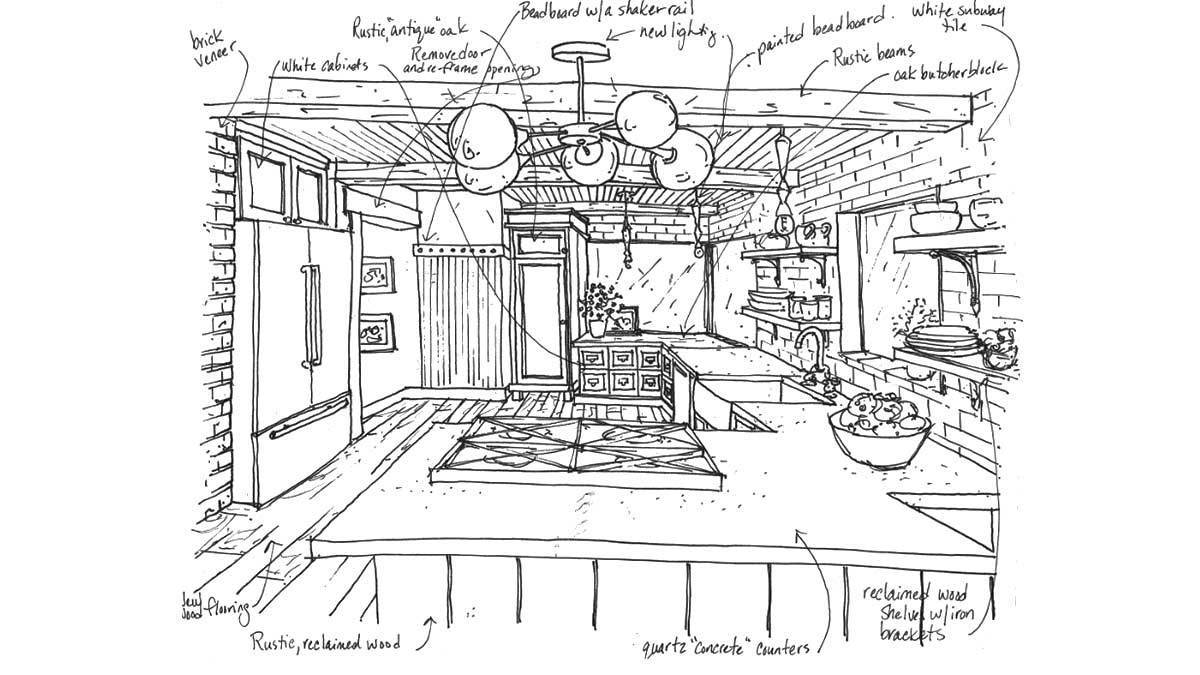 Beadboard w/a shaker rail
white subway
tile
Rustic, "antique" oak
new lighting
painted beadboard.
brick
veneer
Remove door
and re-frame opening
Rustic beams
white cabinets
oak butcherblock
wood flooring
reclaimed wood
shelves w/iron
brackets
Rustic, reclaimed wood
quartz "concrete" counters